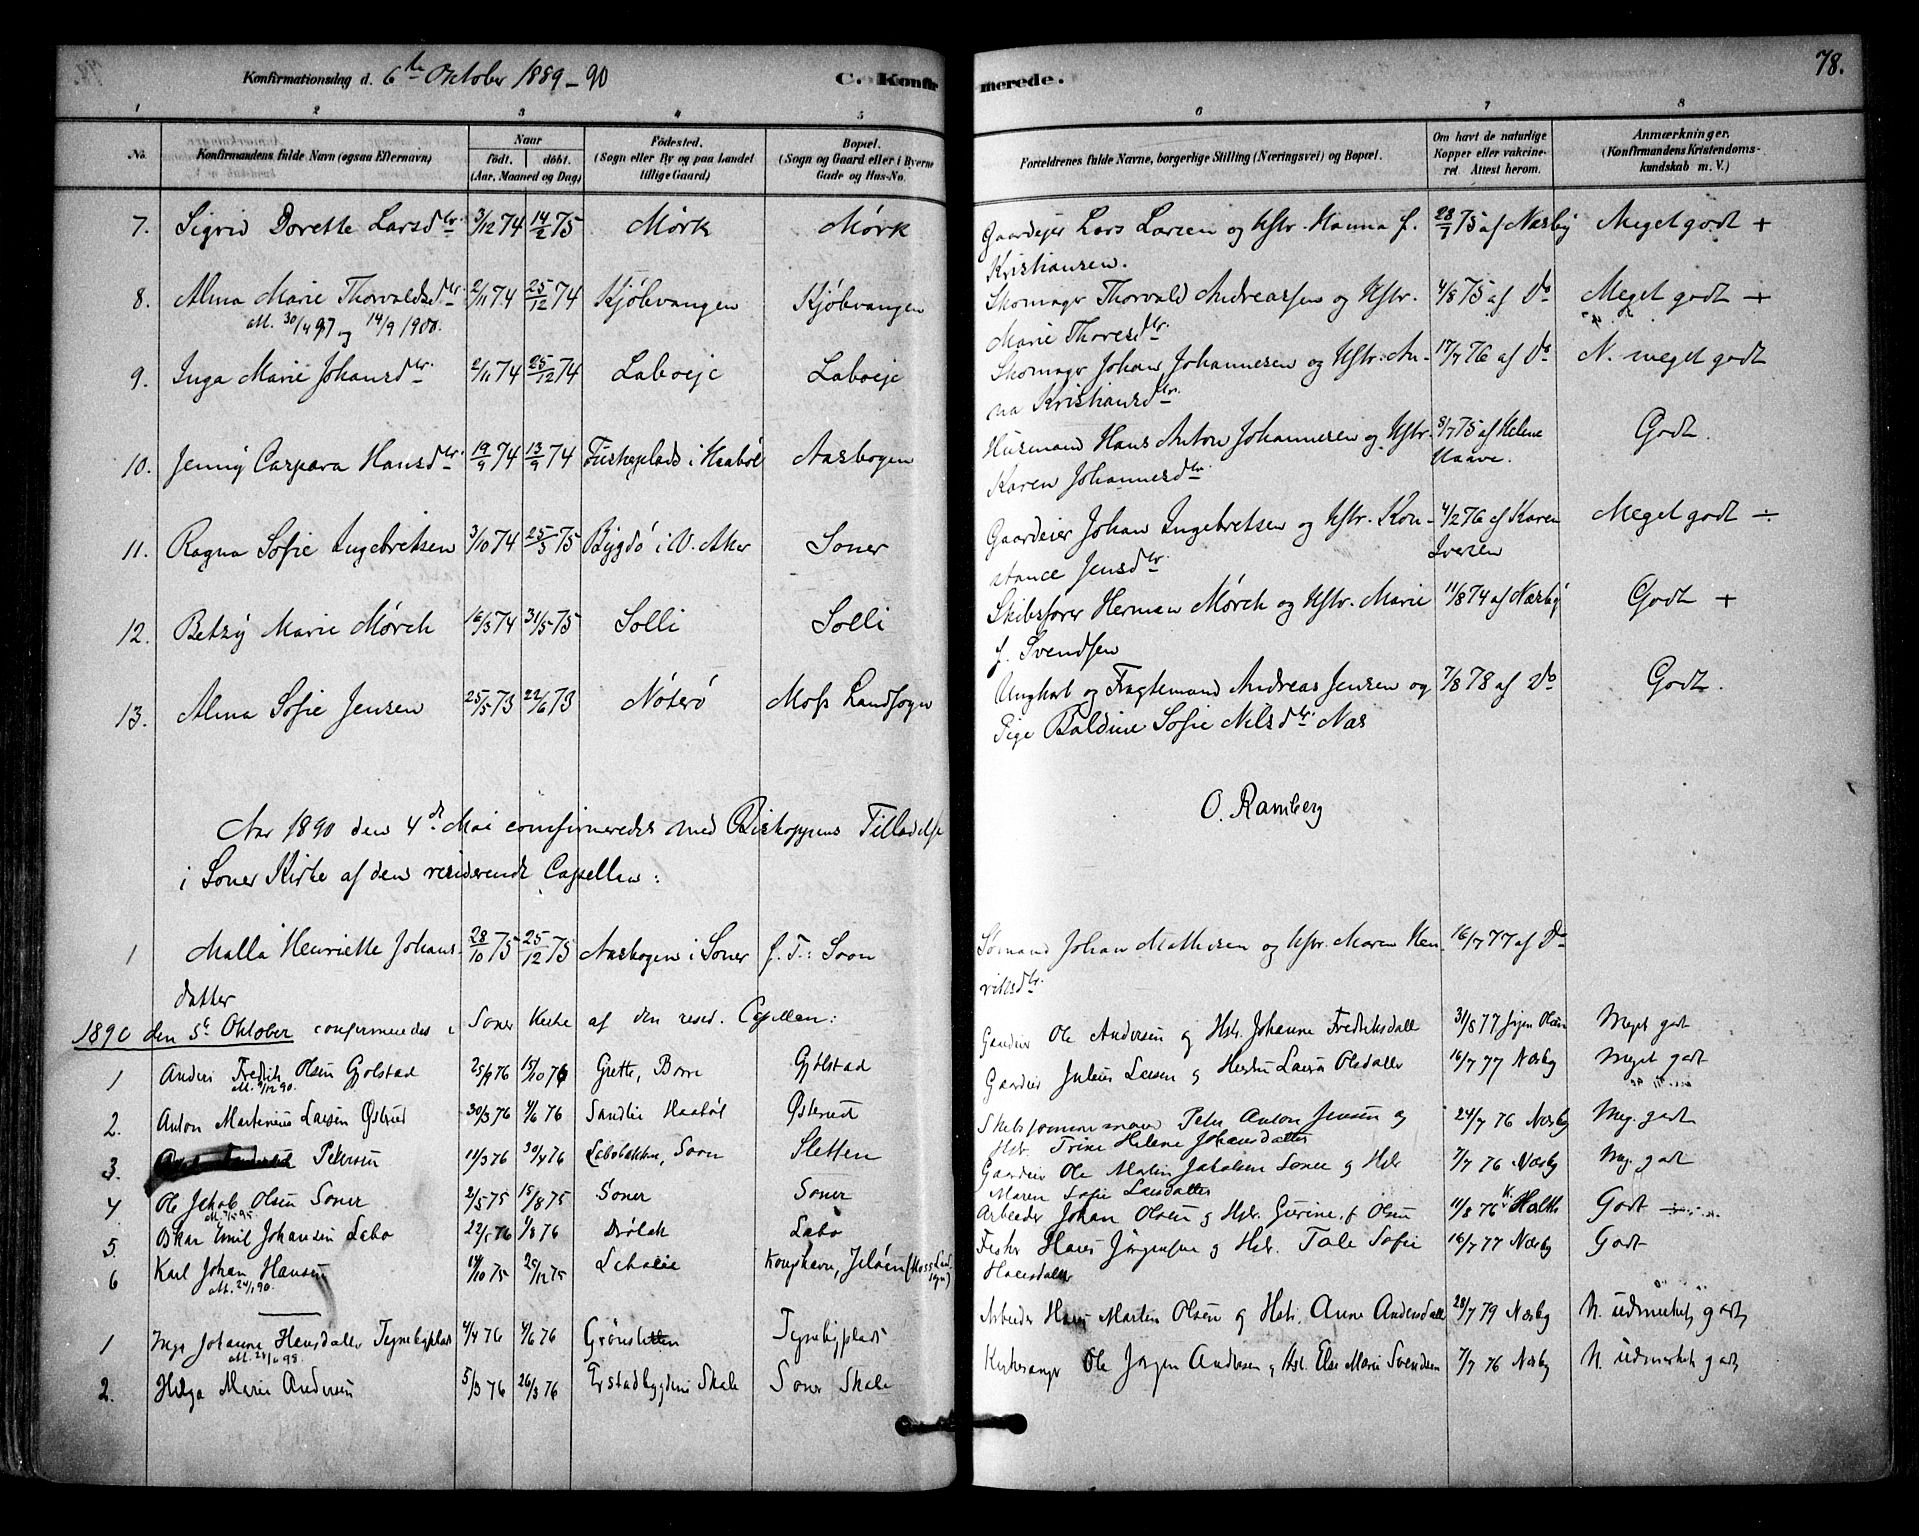 78.
Konfirmationsdag d. 6te Oktober 1889-90 C. Konfirmerede.
1 2 3 4 5 6 7 8
No. Konfirmandens fulde Navn (ogsaa Efternavn) Naar født. døbt. (Aar, Maaned og Dag) Fødested. (Sogn eller By og paa Landet tillige Gaard) Bopæl. (Sogn og Gaard eller i Byerne Gade og Hus-No. Forældrenes fulde Navne, borgerlige Stilling (Næringsvei) og Bopæl. Om havt de naturlige Kopper eller vakcineret Attest herom. Anmærkninger. (Konfirmandens Kristendomskundskab m. V.)
7. Sigrid Dorette Larsdtr. 3/12 74 14/2 75 Mørk Mørk Gaardejer Lars Larsen og Hstr. Hanna f. 28/7 75 af Næsby Meget godt +
Kristiansen.
8. Alma Marie Thorvaldsdtr. 2/11 74 25/12 74 Kjøbvangen Kjøbvangen Skomager Thorvald Andreassen og Hstr. 4/8 75 af Do Meget godt +
att. 30/4 97 og 14/9 1900. Marie Thoresdtr.
9. Inga Marie Johansdtr. 2/11 74 25/12 74 Laboeje Laboeje Skomager Johan Johannesen og Hstr. An- 17/7 76 af Do N. meget godt
na Kristiansdtr.
10. Jenny Caspara Hansdtr. 19/9 74 13/9 74 Haabøl Aasbogen Husmand Hans Anton Johannesen og Hstr. 5/7 75 af Helene Godt.
Karen Johannesdtr.
11. Ragna Sofie Ingebretsen 3/10 74 25/3 75 Bygdø i V. Aker Soner Gaardeier Johan Ingebretsen og Hstr. Kon- 4/2 76 af Karen Iversen Meget godt ÷
stance Jensdtr.
12. Betzy Marie Mørch 16/3 74 31/5 75 Solli Solli Skibsfører Herman Mørch og Hstr. Marie 11/8 74 af Næsby Godt +
f. Svendsen
13. Alma Sofie Jensen 25/5 73 22/6 73 Nøterø Moss Landsogn Ungkarl og Fragtemand Andreas Jensen og 7/8 78 af Do Godt.
Pige Baldine Sofie Nilsdtr. Næs
O. Ramberg
Aar 1890 den 4de Mai confirmeredes med Biskoppens Tilladelse
i Soner Kirke af den residerende Capellan:
1 Malla Henriette Johans- 28/10 75 25/12 75 Aasbogen i Soner f. T.: Soon Sømand Johan Mathisen og Hstr. Maren Hen- 16/7 77 af Do
datter riksdtr.
1890 den 5te Oktober confirmeredes i Soner Kirke af den resid. Capellan:
1 Anders Fredrik Olsen Gjølstad 25/9 76 15/10 76 Grette, Borre Gjølstad Gaardeier Ole Andersen og Hstr. Johanne Fredriksdatter 31/8 77 Meget godt
2. Anton Martinius Larsen Østerud 30/3 76 4/6 76 Sandlie Haabøl Østerud Gaardeier Julius Larsen og Hustru Laura Olsdatter 16/7 77 Næsby Meget godt
3. Petersen 12/3 76 30/4 76 Labobakken, Soon Sletten Skibstømmermand Peter Anton Jensen og 24/7 76 Næsby Meg. godt
Hstr. Trine Helene Johansdatter
4 Ole Jakob Olsen Soner 2/5 75 15/8 75 Soner Soner Gaardeier Ole Martin Jakobsen Soner og Hstr. 7/7 76 Næsby Meg. godt
Maren Sofie Larsdatter
5. Oskar Emil Johansen Labo 22/1 76 1/8 76 Drøbak Labo Arbeider Johan Olsen og Hstr. Gurine f. Olsen 11/8 76 Godt
6 Karl Johan Hansen 14/10 75 25/12 75 Laboeie Kongshavn, Jeløen Fisker Hans Jørgensen og Hstr. Tale Sofie 16/7 77 Næsby Godt
att. 24/1 90. Hansdatter
1 Inga Johanne Hansdatter Tegnebyplads 4/4 76 4/6 76 Grønsletten Tegnebyplads Arbeider Hans Martin Olsen og Hstr. Anne Andersdatter 28/7 79 Næsby N. udmerket godt
2. Helga Marie Andersen 5/3 76 26/3 76 Erstadbygdens Skole Soner Skole Kirkesanger Ole Jørgen Andersen og Hstr. Else Marie Svendsen 7/7 76 Næsby N. udmerket godt